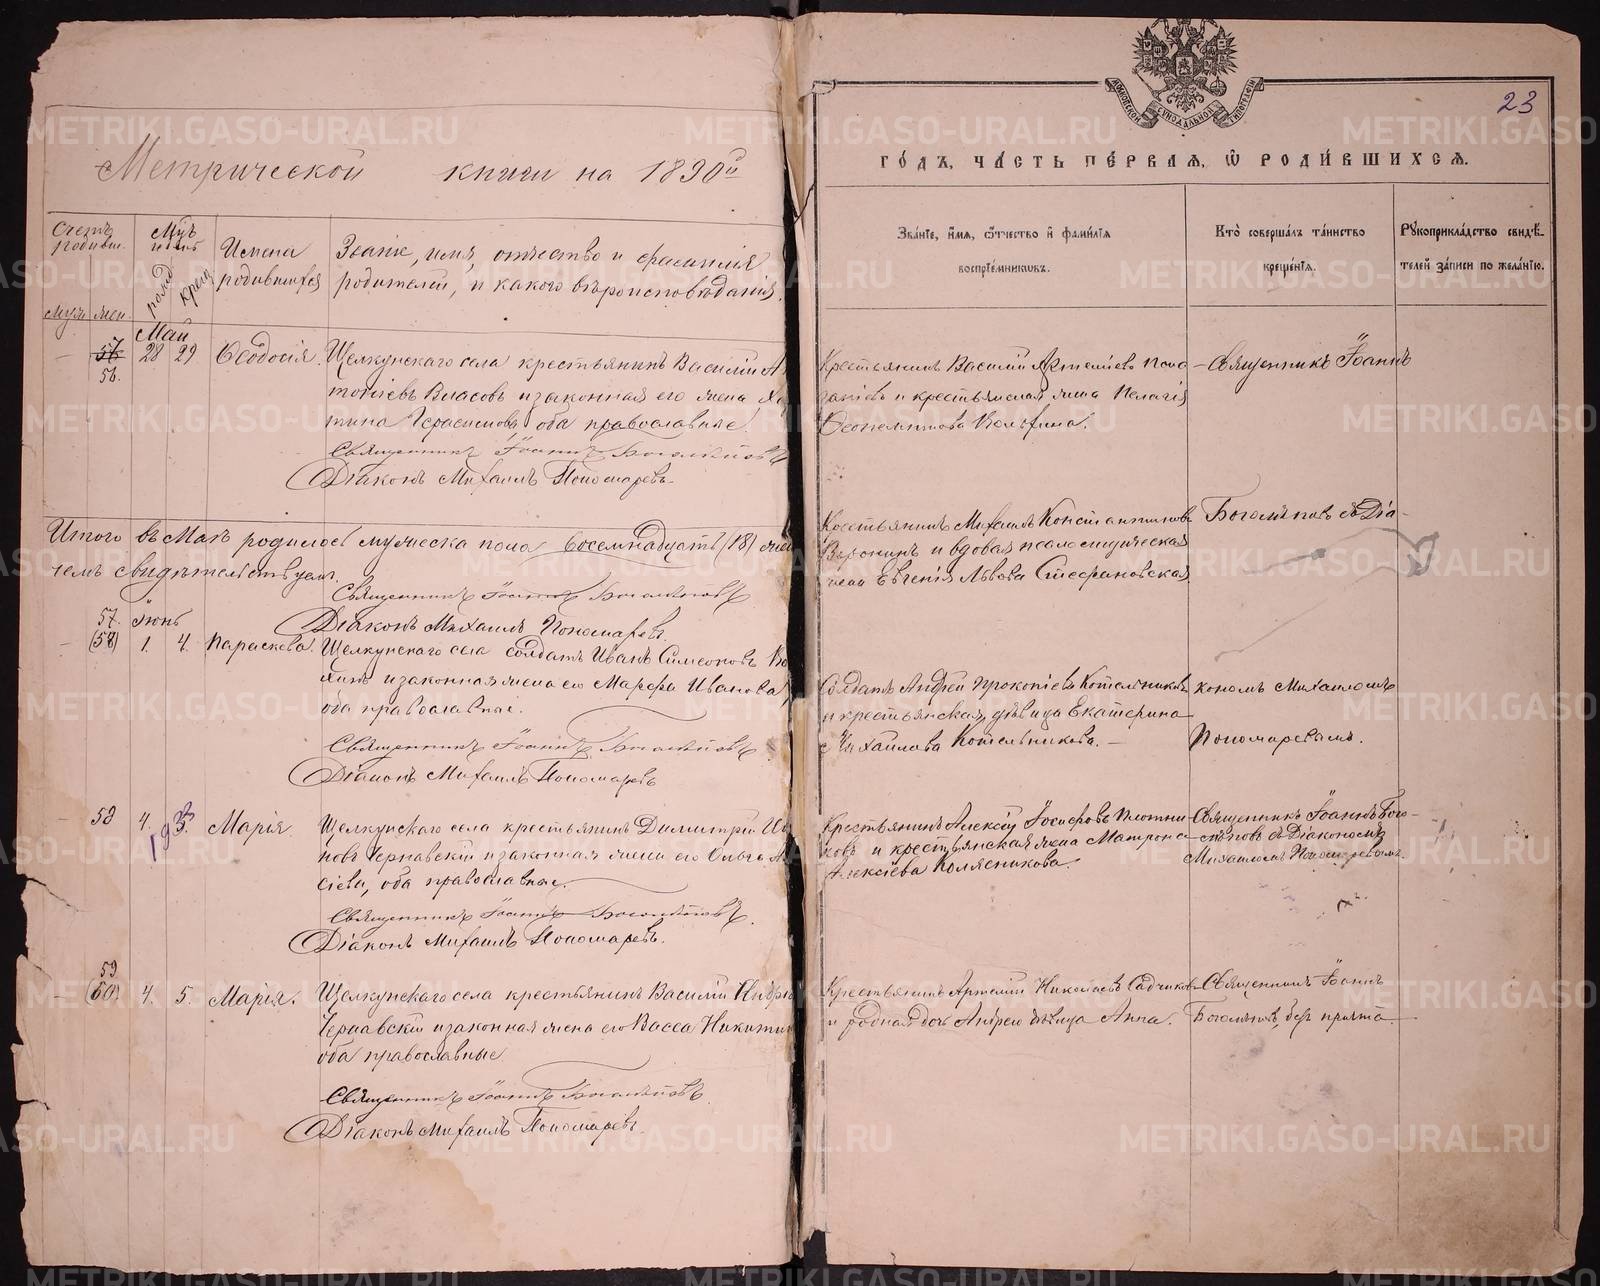 Метрической книги на 1890й
Счетъ родивш.
муж. жен.
Имена родившихся
Званіе, имя, отчество и фамилія
родителей, и какого вѣроисповѣданія.
Май
57
56.
28 29 Ѳеодосія. Щелкунскаго села крестьянинъ Василій
тоніевъ Власовъ и законная его жена
Герасимова, оба православные
Священникъ Іоаннъ Боголѣповъ
Діаконъ Михаилъ Пономаревъ.
Итого въ Маѣ родилось мужеска пола восемнадцать (18)
чемъ свидѣтельствуемъ.
Священникъ Іоаннъ Боголѣповъ
Діаконъ Михаилъ Пономаревъ.
57. Іюнь
(58) 1. 4. Параскева. Щелкунскаго села солдатъ Иванъ Симеоновъ
и законная жена его Марѳа Иванова,
оба православные.
Священникъ Іоаннъ Боголѣповъ
Діаконъ Михаилъ Пономаревъ
58 4. Марія. Щелкунскаго села крестьянинъ Димитрій
новъ Чернавскій и законная жена его Ольга
сіева, оба православные.
Священникъ Іоаннъ Боголѣповъ.
Діаконъ Михаилъ Пономаревъ.
59
(60) 4. 5. Марія. Щелкунскаго села крестьянинъ Василій
Чернавскій и законная жена его Васса
оба православные
Священникъ Іоаннъ Боголѣповъ.
Діаконъ Михаилъ Пономаревъ.
МОСКОВСКОЙ СѴНОДАЛЬНОЙ ТИПОГРАФІИ
23
ГОДЪ, ЧАСТЬ ПЕРВАЯ, Ѡ РОДИВШИХСЯ.
Званіе, имя, отчество и фамилія
воспріемниковъ.
Кто совершалъ таинство
крещенія.
Рукоприкладство свидѣ-
телей записи по желанію.
Крестьянинъ Василій Артеміевъ
и крестьянская жена Пелагія
Священникъ Іоаннъ
Крестьянинъ Михаилъ Константиновъ
Воронинъ и вдовая псаломщическая
жена Евгенія Львова Стефановская.
Боголѣповъ съ Діа-
Солдатъ Андрей Прокопіевъ Котельниковъ
и крестьянская дѣвица Екатерина
Михайлова Котельникова.
кономъ Михаиломъ
Пономаревымъ.
Крестьянинъ Алексій Іосифовъ Плотни-
ковъ и крестьянская жена Матрона
Алексіева Колясникова.
Священникъ Іоаннъ Бого-
лѣповъ съ Діакономъ
Михаиломъ Пономаревымъ.
Крестьянинъ Артемій Николаевъ Садчиковъ
и родная дочь Андрею дѣвица Анна.
Священникъ Іоаннъ
Боголѣповъ, безъ причта.
METRIKI.GASO-URAL.RU